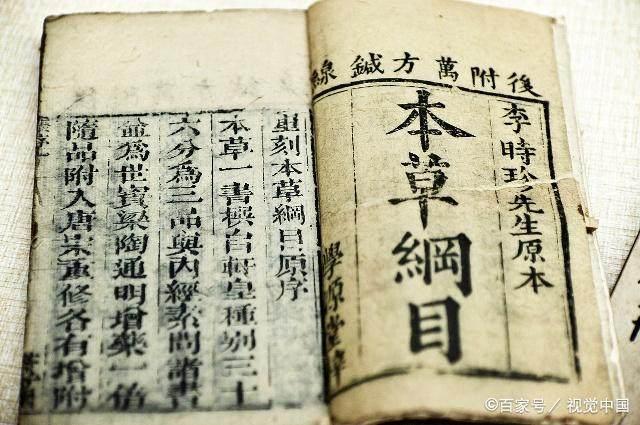 後附萬方鍼線
李時珍先生原本
本草綱目
學源堂
重刻本草綱目原序
本草一書自軒皇種别三十
六分為三品與內經素問諸書
並為世寶梁陶通明增藥一倍
隨品附入唐宋重修各有增附
©百家号／视觉中国